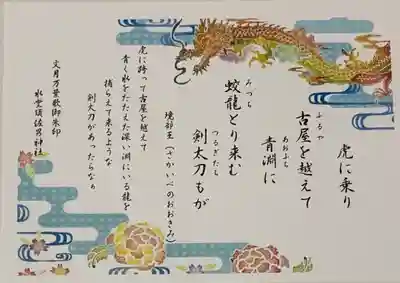 虎に乗り
古屋を越えて
ふるや
青淵に
あおふち
蛟龍とり来む
みづち
剣太刀もが
つるぎたち
境部王(さかいべのおおきみ)
虎に跨って古屋を越えて
青く水をたたえた深い淵にいる龍を
捕らえて来るような
剣太刀があったらなぁ
文月万葉歌御朱印
水堂須佐男神社